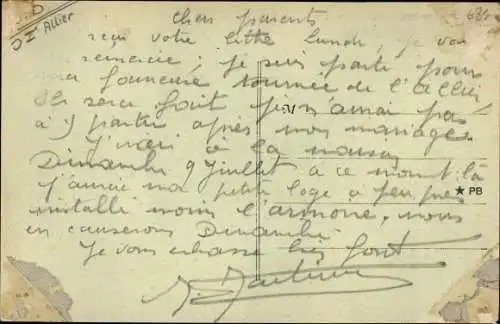 D
DI Allier
68/
Chers parents
reçu votre lettre lundi, je vous
remercie ; je suis parti pour
ma fameuse tournée de l'Allier
et sera fait, je n'aurai pas
à y partir après mon mariage.
J'irai à la
Dimanche 9 juillet à ce moment là
j'aurai ma petite loge à peu près
installé moins l'armoire, nous
en causerons Dimanche
Je vous embrasse bien fort
M
★ PB